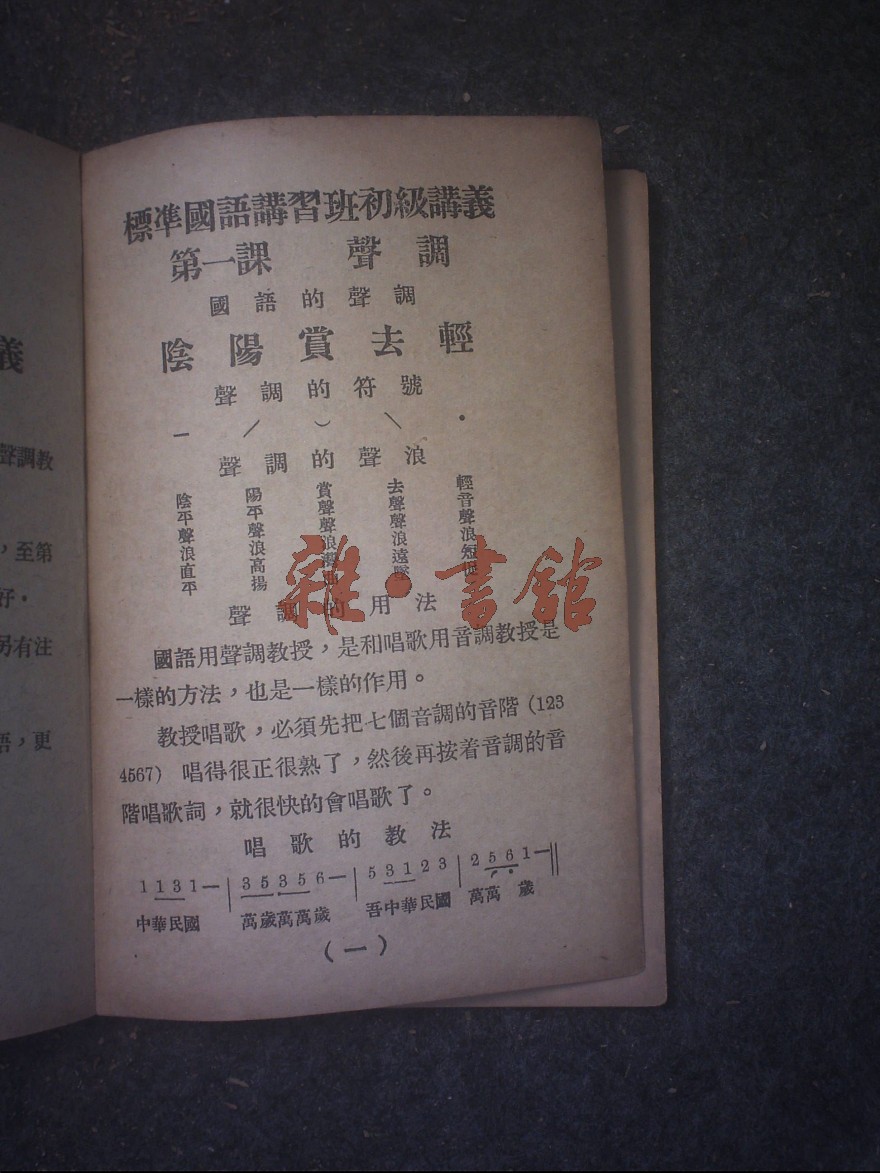 標準國語講習班初級講義
第一課 聲調
國語的聲調
陰陽賞去輕
聲調的符號
一 ／ ︶ ＼ ·
聲調的聲浪
陰平聲浪直平
陽平聲浪高揚
賞聲聲浪灣曲
去聲聲浪遠墜
輕音聲浪短促
聲調的用法
國語用聲調教授，是和唱歌用音調教授是
一樣的方法，也是一樣的作用。
教授唱歌，必須先把七個音調的音階(123
4567) 唱得很正很熟了，然後再按着音調的音
階唱歌詞，就很快的會唱歌了。
唱歌的教法
1 1 3 1 — | 3 5 3 5 6 — | 5 3 1 2 3 | 2 5 6 1 — ‖
中華民國 萬歲萬萬歲 吾中華民國 萬萬 歲
(一)
義
聲調教
，至第
好。
另有注
語，更
雜·書館